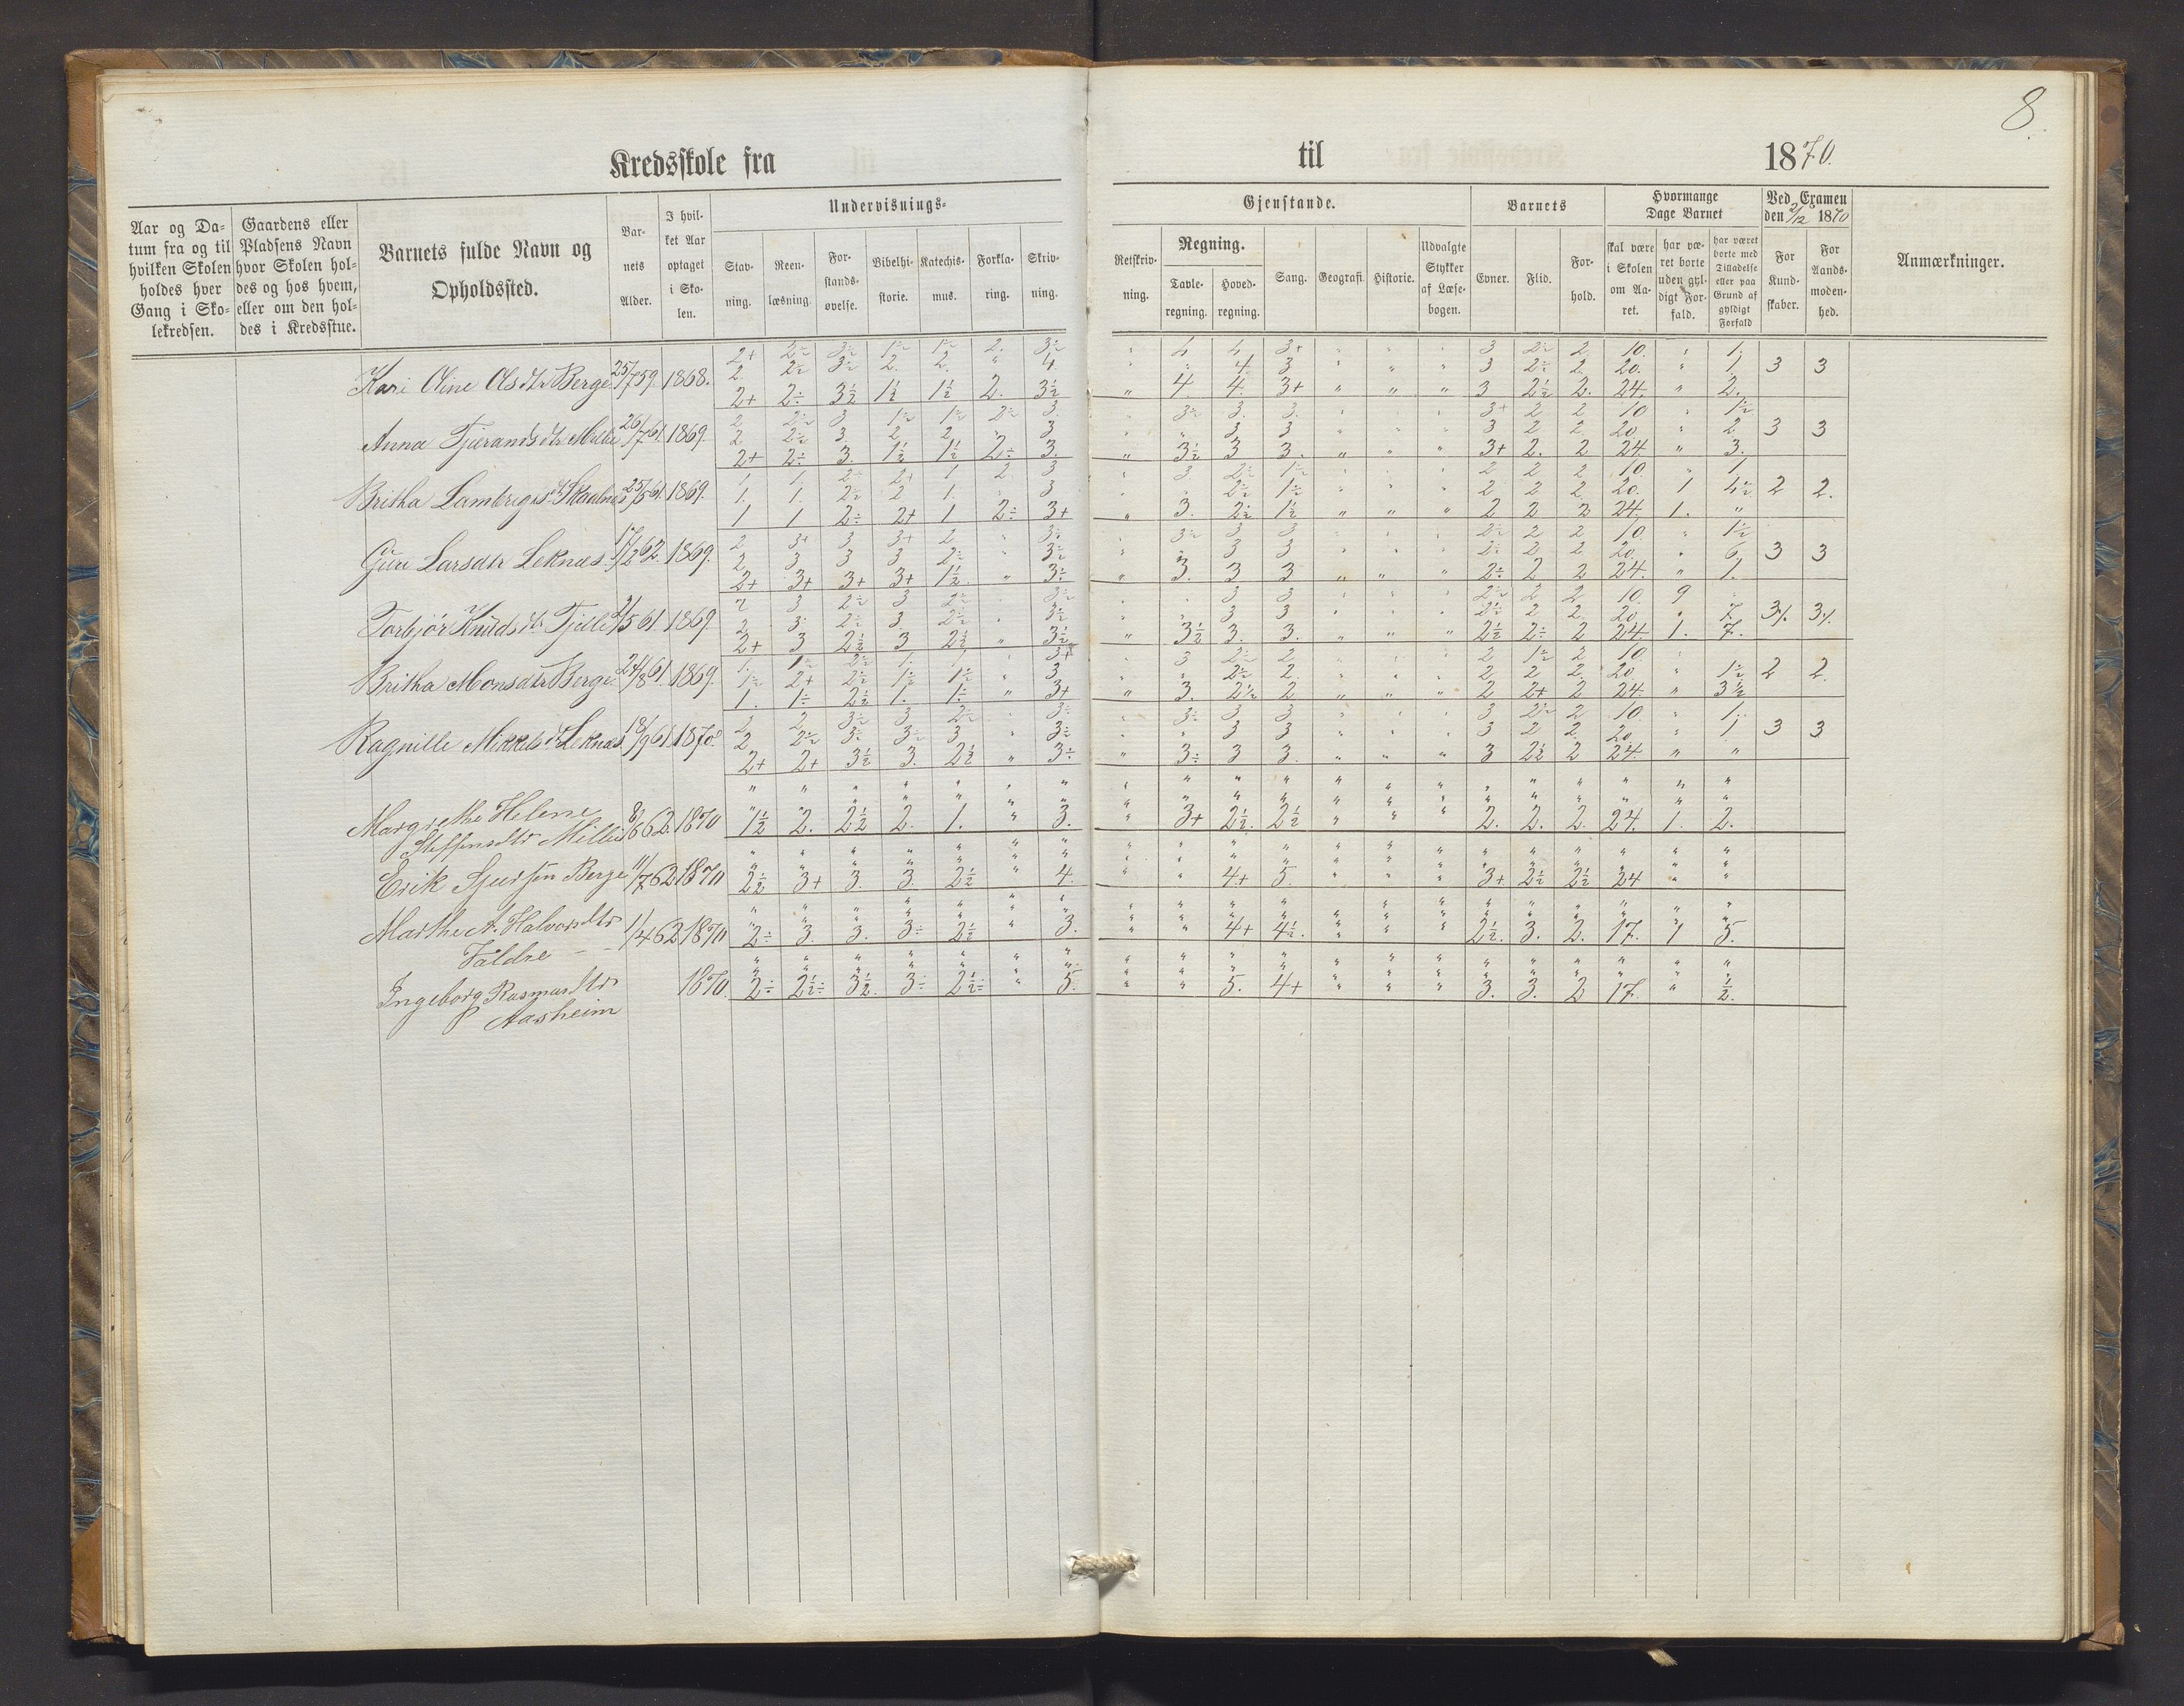 8.
Kredsskole fra til 1870.
Aar og Da-
tum fra og til
hvilken Skolen
holdes hver
Gang i Sko-
lekredsen.
Gaardens eller
Pladsens Navn
hvor Skolen hol-
des og hos hvem,
eller om den hol-
des i Kredsstue.
Barnets fulde Navn og
Opholdssted.
Bar-
nets
Alder.
I hvil-
ket Aar
optaget
i Sko-
len.
Undervisnings-
Stav-
ning.
Reen-
læsning.
For-
stands-
øvelse.
Bibelhi-
storie.
Katechis-
mus.
Forkla-
ring.
Skriv-
ning.
Gjenstande.
Retskriv-
ning.
Regning.
Tavle-
regning.
Hoved-
regning.
Sang.
Geografi.
Historie.
Udvalgte
Stykker
af Læse-
bogen.
Barnets
Evner.
Flid.
For-
hold.
Hvormange
Dage Barnet
skal være
i Skolen
om Aa-
ret.
har væ-
ret borte
uden gyl-
digt For-
fald.
har været
borte med
Tilladelse
eller paa
Grund af
gyldigt
Forfald
Ved Examen
den 2/12 1870
For
Kund-
skaber.
For
Aands-
moden-
hed.
Anmærkninger.
2+ 2÷ 3÷ 1÷ 1÷ 2. 3÷ " 4 4 3+ " " " 3 2÷ 2 10. " 1.
Kari Oline Olsdtr Berge 25/7 59. 1868. 2 2÷ 3÷ 2. 2. " 4 " " 4 3 " " " 3 2÷ 2. 20. " 1 3 3
2+ 2÷ 3½ 1½ 1½ 2. 3½ " 4. 4. 3+ " " " 3 2½ 2. 24. " 2.
2 2÷ 3 1÷ 1÷ 2÷ 3. " 3÷ 3. 3. " " " 3+ 2 2 10 " 1½
Anna Tjerandsdtr 26/7 61. 1869. 2 2÷ 3. 2 2 " 3 " " 3 3 " " " 3 2 2 20. " 2 3 3
2+ 2÷ 3. 1½ 1½ 2÷ 3. " 3½ 3 3. " " " 3+ 2. 2 24. " 3.
1 1. 2÷ 2+ 1 2 3 " 3 2÷ 1÷ " " " 2 2 2 10. " 1
Britha Lambrigtsdtr 25/5 61. 1869. 1. 1. 2÷ 2 1. " 3 " " 2÷ 1÷ " " " 2 2 2 20. 1 4½ 2 2.
1 1 2÷ 2+ 1 2÷ 3+ " 3. 2½ 1½ " " " 2 2 2 24. 1. "
2 3+ 3 3+ 2 " 3÷ " 3÷ 3 3 " " " 2÷ 2 2 10. " 1½
Guri Larsdtr Leknes. 17/2 62. 1869. 2 3 3 3 2÷ " 3÷ " " 3 3 " " " 2÷ 2 2 20. " 6 3 3
2+ 3+ 3+ 3+ 1½ " 3÷ " 3. 3 3 " " " 2÷ 2 2 24. " 1.
2 3 2÷ 3 2÷ " 3÷ " " 3 3 " " " 2÷ 2 2 10. 9 "
Torbjør Knudsdtr Tjelle 1869. 2 3 2÷ 3. 2÷ " 3÷ " " 3 3 " " " 2÷ 2 2 20 " 7. 3%. 3%.
2+ 3 2½ 3 2½ " 3½ " 3½ 3. 3. " " " 2½ 2÷ 2 24. 1. 7.
1. 1÷ 2÷ 1. 1. " 3+ " 3 2÷ 2 " " " 2 1÷ 2 10. "
Britha Monsdtr Berge 24/8 61. 1869. 1÷ 2+ 2÷ 1÷ 1÷ " 3 " " 2÷ 2. " " " 2 2 2 20 " 1½ 2 2.
1. 1÷ 2½ 1. 1÷ " 3+ " 3. 2½ 2 " " " 2 2+ 2 24. " 3½
2 2 3÷ 3 2÷ " 3÷ " 3÷ 3 3 " " " 3 2÷ 2 10. " 1.
Ragnille Mikkelsdtr Leknes 18/9 61. 1870. 2 2÷ 3÷ 3÷ 3 " 3÷ " " 3 3 " " " 3 2 2 20 " 1 3 3
2+ 2+ 3½ 3. 2½ " 3÷ " 3÷ 3 3. " " " 3 2½ 2 24. " "
Margrethe Helene 8/6 62. 1870 1½ 2. 2½ 2. 1. " 3. " 3+ 2½. 2½ " " " 2. 2. 2. 24. 1. 2.
Steffensdtr
Erik Sjursøn Berge 11/7 62 1870 2½ 3+ 3. 3. 2½ " 4. " " 4+ 5. " " " 3+ 2½ 2½ 24 " "
Marthe A. Halvorsdtr 1/4 62 1870 2÷ 3. 3. 3÷ 2½ " 3. " " 4+ 4½. " " " 2½. 3. 2. 17. 1 5.
Faldre
Ingeborg Rasmusdtr 1870. 2÷ 2½÷ 3½. 3÷ 2½÷ " 5. " " 5. 4+ " " " 3. 3. 2 17. " ½.
Aasheim